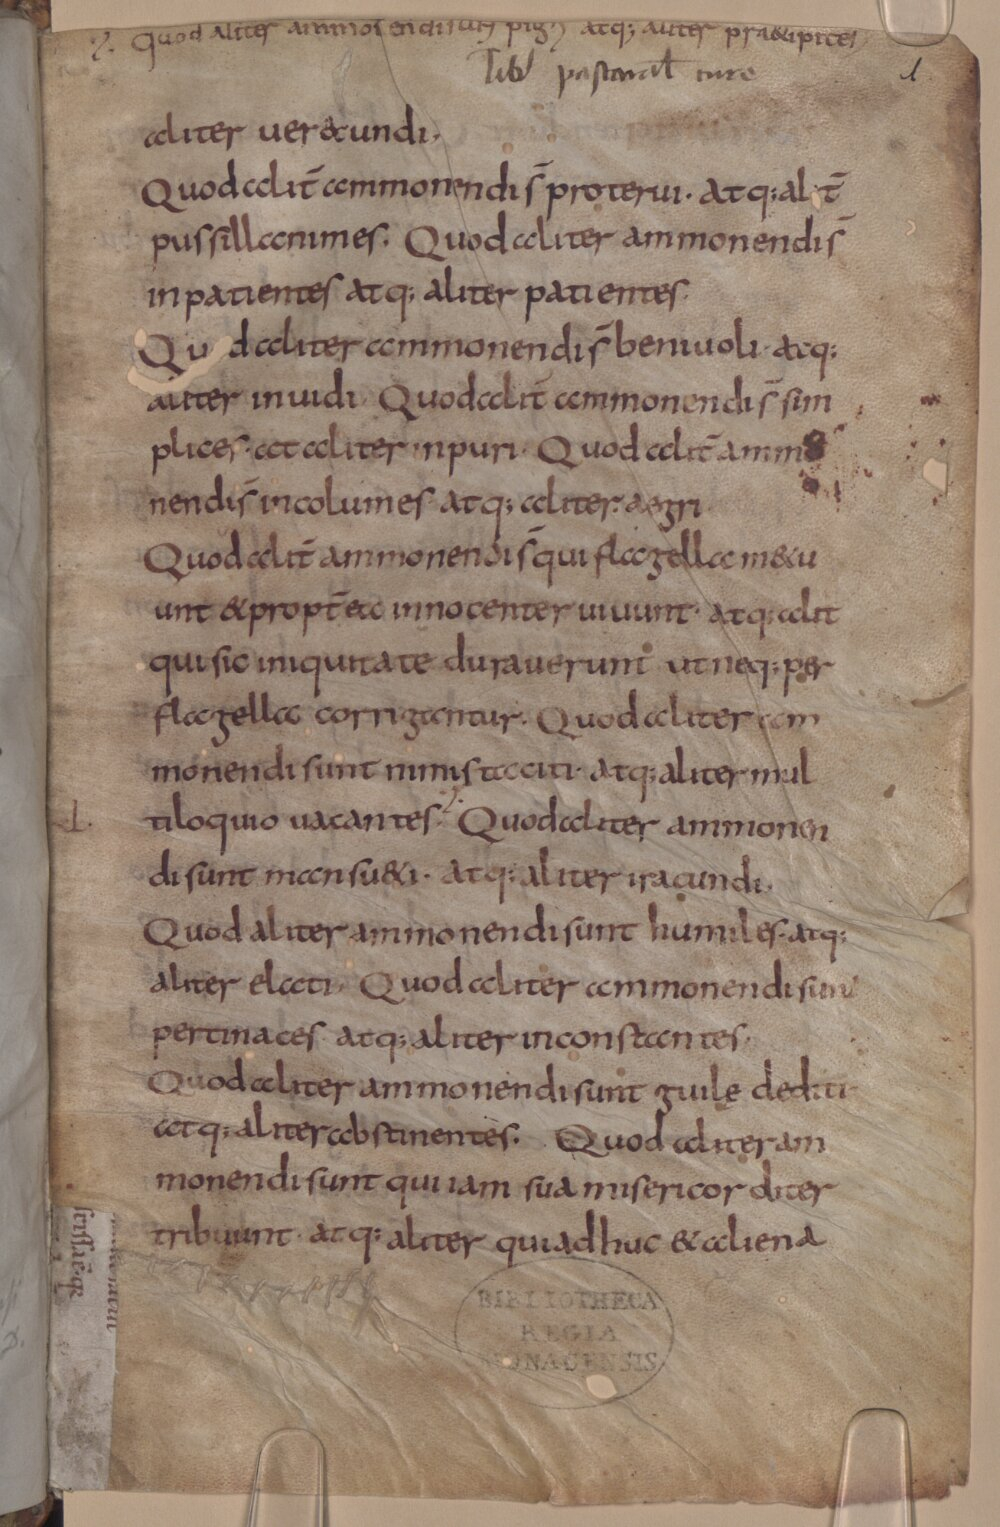 Quod aliter ammonendi sunt pigri atq; aliter praecipites
Lib pastoral cure
1
aliter verecundi.
Quod alit̄ ammonendi s̄ proterui. atq; alit̄
pussillanimes. Quod aliter ammonendi s̄
inpatientes atq; aliter patientes.
Quod aliter ammonendi s̄ beniuoli. atq;
aliter inuidi. Quod alit̄ ammonendi s̄ sim
plices. at aliter inpuri. Quod alit̄ ammo
nendi s̄ incolumes. atq; aliter. aegri.
Quod alit̄ ammonendi s̄ qui flagella m&u
unt & propt̄ ea innocenter uiuunt. atq; alit
qui sic iniquitate durauerunt ut neq; per
flagella corrigantur. Quod aliter am
monendi sunt nimis taciti. atq; aliter mul
tiloquio uacantes. Quod aliter ammonen
di sunt mansu&i. atq; aliter iracundi.
Quod aliter ammonendi sunt humiles. atq;
aliter elati. Quod aliter ammonendi sunt
pertinaces. atq; aliter inconstantes.
Quod aliter ammonendi sunt guile dediti
atq; aliter abstinentes. Quod aliter am
monendi sunt qui iam sua misericorditer
tribuunt. atq; aliter qui adhuc & aliena
BIBLIOTHECA
REGIA
MONACENSIS